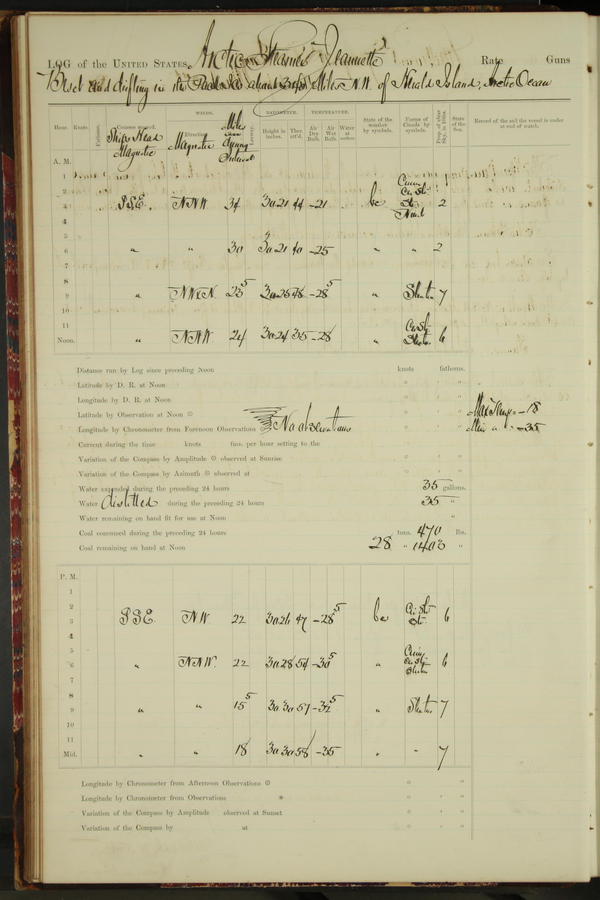 LOG of the UNITED STATES Arctic Steamer Jeannette Rate Guns
Beset and drifting in the Pack Ice about Miles N.W. of Herald Island, Arctic Ocean
Hour. Knots. Fathoms. Courses steered. WINDS. Direction. Leeway. BAROMETER. Height in inches. Ther. att'd. TEMPERATURE. Air Dry Bulb. Air Wet Bulb. Water at surface. State of the weather by symbols. Forms of Clouds by symbols. Prop. of clear Sky, in 10ths. State of the Sea. Record of the sail the vessel is under at end of watch.
Ships Head Magnetic Magnetic Miles
A. M.
1
2
3 SSE. NNW 34 30 21 44 -21 bc Cir St 2
4
5
6 " " 30 30 21 40 -25 " " 2
7
8
9 " NWxN. 23 5 30 25 48 -28 5 " Stratus 7
10
11
Noon. " NNW. 24 30 24 35 -28 " Cir St Stratus 6
Distance run by Log since preceding Noon knots fathoms.
Latitude by D. R. at Noon ° ' "
Longitude by D. R. at Noon ° ' "
Latitude by Observation at Noon ° ' " Max Temp. -18
Longitude by Chronometer from Forenoon Observations No observations ° ' " Min " -35
Current during the time knots fms. per hour setting to the
Variation of the Compass by Amplitude observed at Sunrise ° ' "
Variation of the Compass by Azimuth observed at ° ' "
Water expended during the preceding 24 hours 35 gallons.
Water distilled during the preceding 24 hours 35 "
Water remaining on hand fit for use at Noon "
Coal consumed during the preceding 24 hours tons. 470 lbs.
Coal remaining on hand at Noon 28 " 1403 "
P. M.
1
2
3 SSE. NW. 22 30 26 47 -28 5 bc Ci. St. St. 6
4
5
6 " NNW. 22 30 28 54 -30 5 " 6
7
8
9 " " 15 5 30 30 57 -32 5 " Stratus 7
10
11
Mid. " " 18 30 30 58 -35 " " 7
Longitude by Chronometer from Afternoon Observations ° ' "
Longitude by Chronometer from Observations * ° ' "
Variation of the Compass by Amplitude observed at Sunset ° ' "
Variation of the Compass by at ° ' "